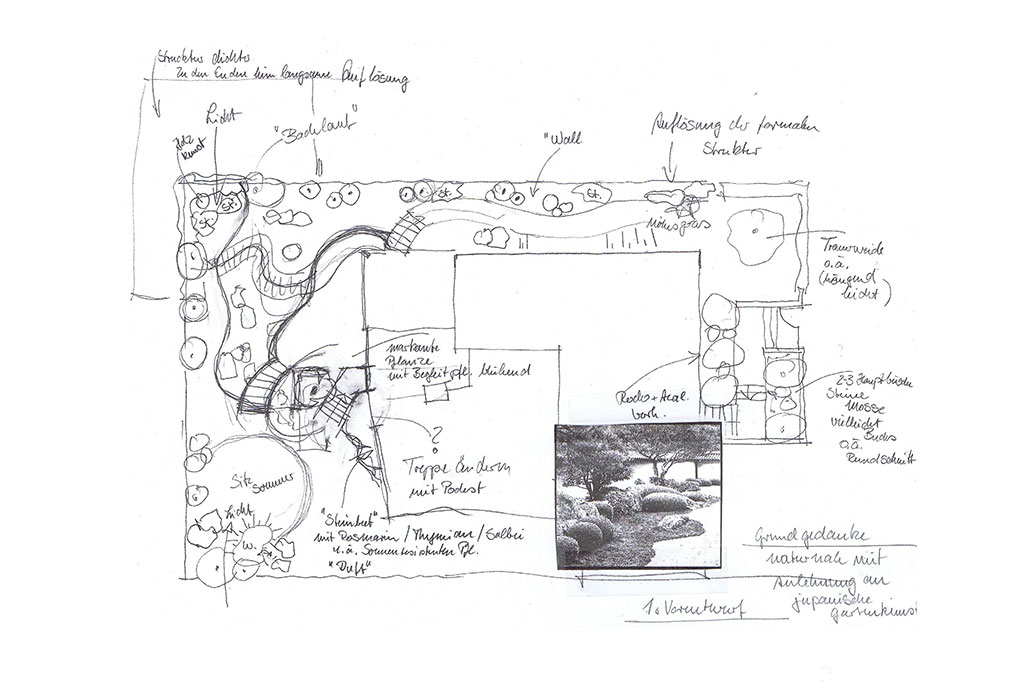 Struktur dichter
zu den Enden hin langsame Auflösung
Licht
Holz
Kunst
"Bachlauf"
"Wall
Auflösung der formalen
Struktur
St.
St.
St.
St.
Trauerweide
o.ä.
(hängend
leicht)
markante
Pflanze
mit Begleitpfl. blühend
Rodo + Azal.
vorh.
2-3 Hauptbüsche
Steine
Moose
vielleicht
Buchs
o.ä.
Rundschnitt
?
Treppe ändern
mit Podest
Sitz
Sommer
Licht
W.
"Steinbeet"
mit Rosmarin / Thymian / Salbei
u.ä. Sonnenresistenten Pfl.
"Duft"
Grundgedanke
naturnah mit
Anlehnung an
japanische
Gartenkunst
1. Vorentwurf